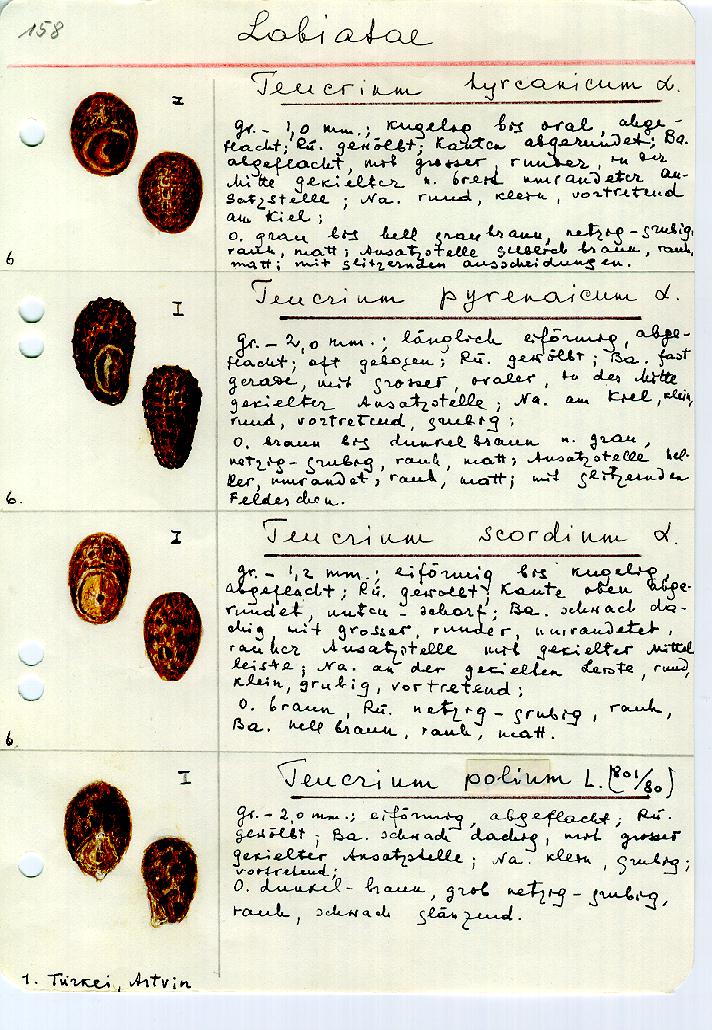 158
Labiatae
Teucrium hyrcanicum L.
gr. - 1,0 mm.; kugelog bis oral, abge-
flacht; Rü. gewölbt; Kanten abgerundet; Ba.
abgeflacht, mit grosser, runder, in der
Mitte gekielter u. breit umrandeter An-
satzstelle; Na. rund, klein, vortretend
am Kiel;
O. grau bis hell graubraun, netzig-grubig,
rauh, matt; Ansatzstelle gelblich braun, rauh,
matt; mit glitzernden ausscheidungen.
6
Teucrium pyrenaicum L.
gr. - 2,0 mm.; länglich eiförmig, abge-
flacht; oft gebogen; Rü. gewölbt; Ba. fast
gerade, mit grosser, ovaler, in der Mitte
gekielter Ansatzstelle; Na. am Kiel, klein,
rund, vortretend, grubig;
O. braun bis dunkelbraun u. grau,
netzig-grubig, rauh, matt; Ansatzstelle hel-
ler, umrandet; rauh, matt; mit glitzernden
Felderchen.
6.
Teucrium scordium L.
gr. - 1,2 mm.; eiförmig bis kugelig,
abgeflacht; Rü. gewölbt; Kante oben abge-
rundet, unten - scharf; Ba. schwach da-
chig, mit grosser, runder, umrandeter,
rauher Ansatzstelle mit gekielter Mittel
leiste; Na. an der gekielten Leiste, rund,
klein, grubig, vortretend;
O. braun, Rü. netzig-grubig, rauh,
Ba. hellbraun, rauh, matt.
6.
Teucrium polium L. (801/80)
gr. - 2,0 mm.; eiförmig, abgeflacht; Rü.
gewölbt; Ba. schwach dachig, mit grosser
gekielter Ansatzstelle; Na. klein, grubig;
vortretend;
O. dunkel-braun, grob netzig-grubig,
rauh, schwach glänzend.
1. Türkei, Artvin